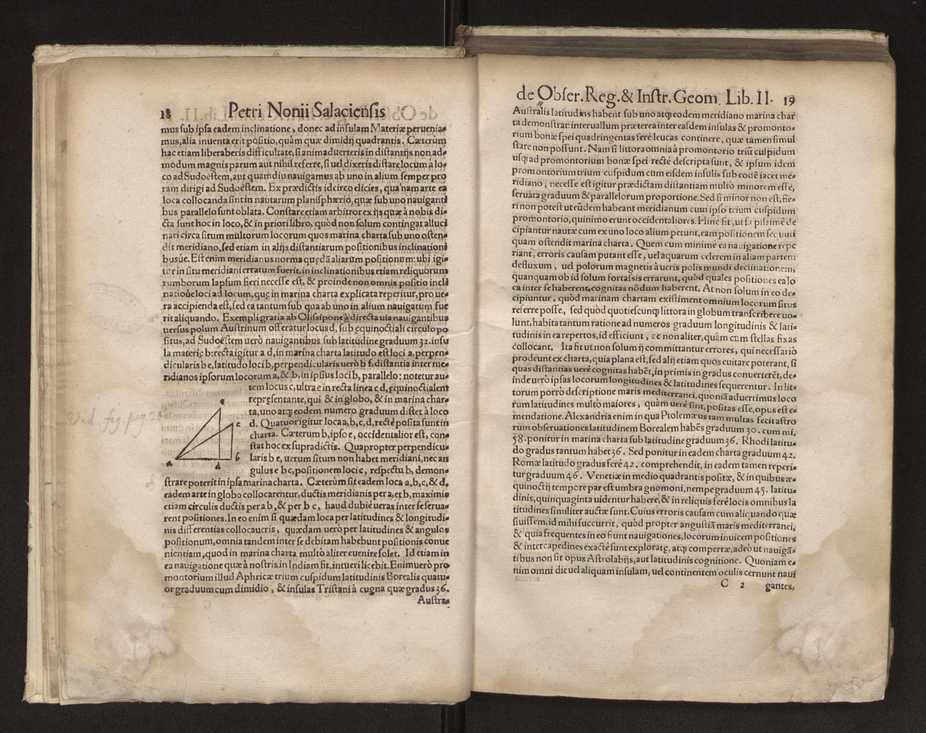 18 Petri Nonii Salaciensis
mus sub ipsa eadem inclinatione, donec ad insulam Materiæ peruenia-
mus, alia inuenta erit positio, quàm quæ dimidij quadrantis. Cæterùm
hac etiam liberaberis difficultate, si animaduerteris in distantijs non ad-
modum magnis parum aut nihil referre, si uel dixeris distare locum à lo-
co ad Sudoëstem, aut quandiu nauigamus ab uno in alium semper pro
ram dirigi ad Sudoëstem. Ex prædictis idcirco elicies, qua nam arte ea
loca collocanda sint in nautarum planisphærio, quæ sub uno nauiganti
bus parallelo sunt oblata. Constare etiam arbitror ex ijs quæ à nobis di-
cta sunt hoc in loco, & in priori libro, quòd non solum contingat alluci
nari circa situm multorum locorum quos marina charta sub uno osten-
dit meridiano, sed etiam in alijs distantiarum positionibus inclinationi
busue. Est enim meridianus norma quædã aliarum positionum: ubi igi-
tur in situ meridiani erratum fuerit, in inclinationibus etiam reliquorum
rumborum lapsum fieri necesse est, & proinde non omnis positio incli
natioue loci ad locum, quę in marina charta explicata reperitur, pro ue-
ra accipienda est, sed ea tantum sub qua ab uno in alium nauigatum fue
rit aliquando. Exempli gratia ab Olisipone à directa uia nauigantibus
uersus polum Austrinum offeratur locus d, sub ęquinoctiali circulo po
situs, ad Sudoëstem uerò nauigantibus sub latitudine graduum 32. insu
la materię b: recta igitur a d, in marina charta latitudo est loci a, perpen-
dicularis b e, latitudo loci b, perpendicularis uerò b f. distantia inter me-
ridianos ipsorum locorum a, & b, in ipsius loci b, parallelo: notetur au-
tem locus c, ultra e in recta linea c d, ęquinoctialem
repręsentante, qui & in globo, & in marina char-
ta, uno atq; eodem numero graduum distet à loco
d. Quatuor igitur loca a, b, c, d, rectè posita sunt in
charta. Cæterum b, ipso c, occidentalior est, con-
stat hoc ex supradictis. Quapropter perpendicu-
laris b e, uerum situm non habet meridiani, nec an
gulus e b c, positionem loci c, respectu b, demon-
strare poterit in ipsa marina charta. Cæterùm sit eadem loca a, b, c, & d,
eadem arte in globo collocarentur, ductis meridianis per a, et b, maximis
etiam circulis ductis per a b, & per b c, haud dubiè ueras inter se serua-
rent positiones. In eo enim si quædam loca per latitudines & longitudi-
nis differentias collocaueris, quædam uerò per latitudines & angulos
positionum, omnia tandem inter se debitam habebunt positionis conue
nientiam, quod in marina charta multò aliter euenire solet. Id etiam in
ea nauigatione quæ à nostris in Indiam fit, intueri licebit. Enimuerò pro
montorium illud Aphricæ trium cuspidum latitudinis Borealis quatu-
or graduum cum dimidio, & insulas Tristani à cugna quæ gradus 36.
Austra-
de Obser. Reg. & Instr. Geom. Lib. II. 19
Australis latitudinis habent sub uno atq; eodem meridiano marina char
ta demonstrat: interuallum præterea inter easdem insulas & promonto-
rium bonæ spei quadringentas ferè leucas continere, quæ tamen simul
stare non possunt. Nam si littora omnia à promontorio triũ cuspidum
usq; ad promontorium bonæ spei rectè descripta sunt, & ipsum idem
promontorium trium cuspidum cum eisdem insulis sub eodẽ iacet me-
ridiano, necesse est igitur prædictam distantiam multò minorem esse,
seruata graduum & parallelorum proportione. Sed si minor non est, fie-
ri non potest ut eũdem habeant meridianum cum ipso trium cuspidum
promontorio, quinimo erunt occidentaliores. Hinc fit, ut sæpissimè de-
cipiantur nautæ cum ex uno loco alium petunt, eam positionem secuti
quam ostendit marina charta. Quem cum minimè ea nauigatione repe
riant, erroris causam putant esse, uel aquarum celerem in aliam partem
defluxum, uel polorum magnetis à ueris polis mundi declinationem,
quanquam ob id solum forsitàn errarunt, quòd quales positiones ea lo
ca inter se haberent, cognitas nõdum haberent. At non solum in eo de-
cipiuntur, quòd marinam chartam existiment omnium locorum situs
referre posse, sed quòd quotiescunq; littora in globum transcribere uo-
lunt, habita tantum ratione ad numeros graduum longitudinis & lati-
tudinis in ea repertos, id efficiunt, ac non aliter, quàm cum stellas fixas
collocant. Ita fit ut non solum ij committantur errores, qui necessariò
prodeunt ex charta, quia plana est, sed alij etiam quos euitare poterant, si
quas distantias uerè cognitas habẽt, in primis in gradus conuerterẽt, de-
inde uerò ipsas locorum longitudines & latitudines sequerentur. In lit-
torum porrò descriptione maris mediterranei, quoniã aduertimus loco
rum latitudines multò maiores, quàm ueræ sint, positas esse, opus est e-
mendatione. Alexandria enim in qua Ptolemæus tam multas fecit astro
rum obseruationes latitudinem Borealem habẽs graduum 30. cum mi.
58. ponitur in marina charta sub latitudine graduum 36. Rhodi latitu-
do gradus tantum habet 36. Sed ponitur in eadem charta graduum 42.
Romæ latitudo gradus ferè 42. comprehendit, in eadem tamen reperi-
tur graduum 46. Venetiæ in medio quadrantis positæ, & in quibus æ-
quinoctij tempore par est umbra gnomoni, nempe graduum 45. latitu-
dinis, quinquaginta uidentur habere, & in reliquis ferè locis omnibus la
titudines similiter auctæ sunt. Cuius erroris causam cum aliquando quæ
siuissem, id mihi succurrit, quòd propter angustiã maris mediterranei,
& quia frequentes in eo fiunt nauigationes, locorum inuicem positiones
& intercapedines exactè sunt exploratę, atq; compertæ, adeò ut nauigã-
tibus non sit opus Astrolabijs, aut latitudinis cognitione. Quoniam e-
nim omni die uel aliquam insulam, uel continentem oculis cernunt naui
C 2 gantes,